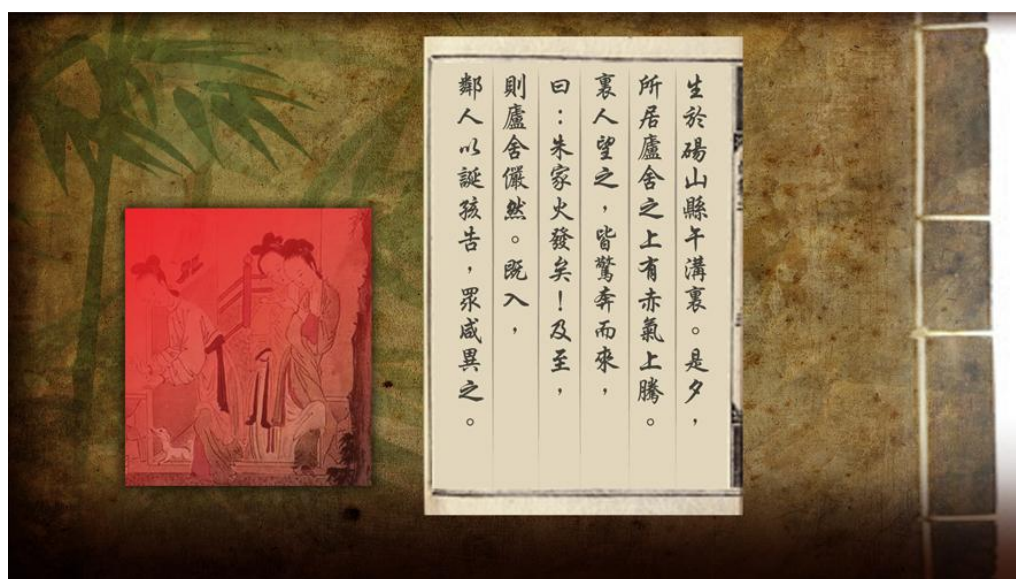 生於碭山縣午溝裏。是夕，
所居廬舍之上有赤氣上騰。
裏人望之，皆驚奔而來，
曰：朱家火發矣！及至，
則廬舍儼然。既入，
鄰人以誕孩告，眾咸異之。